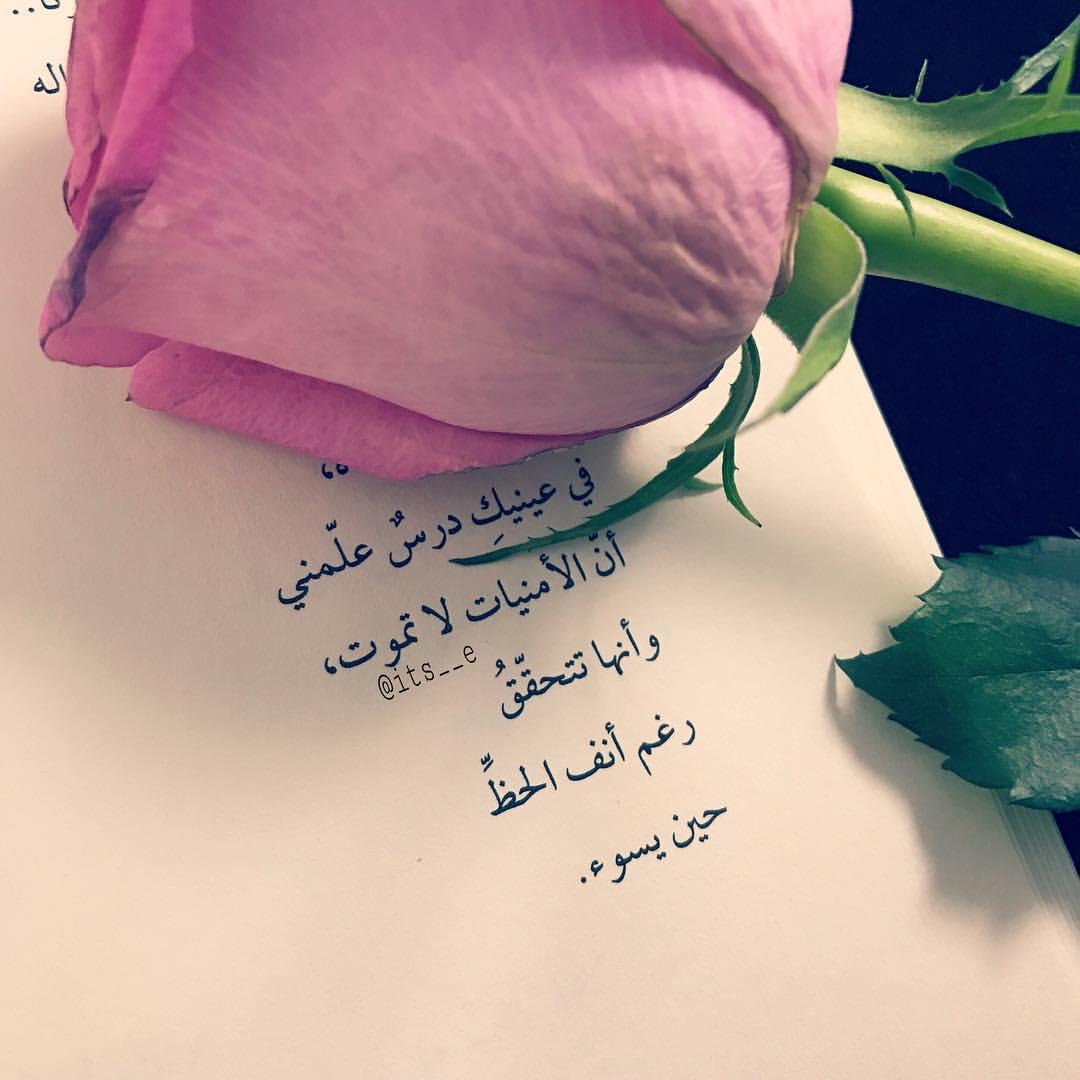 في عينيكِ درسٌ علّمني
أنّ الأمنيات لا تموت،
@its__e
وأنها تتحقّقُ
رغم أنف الحظِّ
حين يسوء.